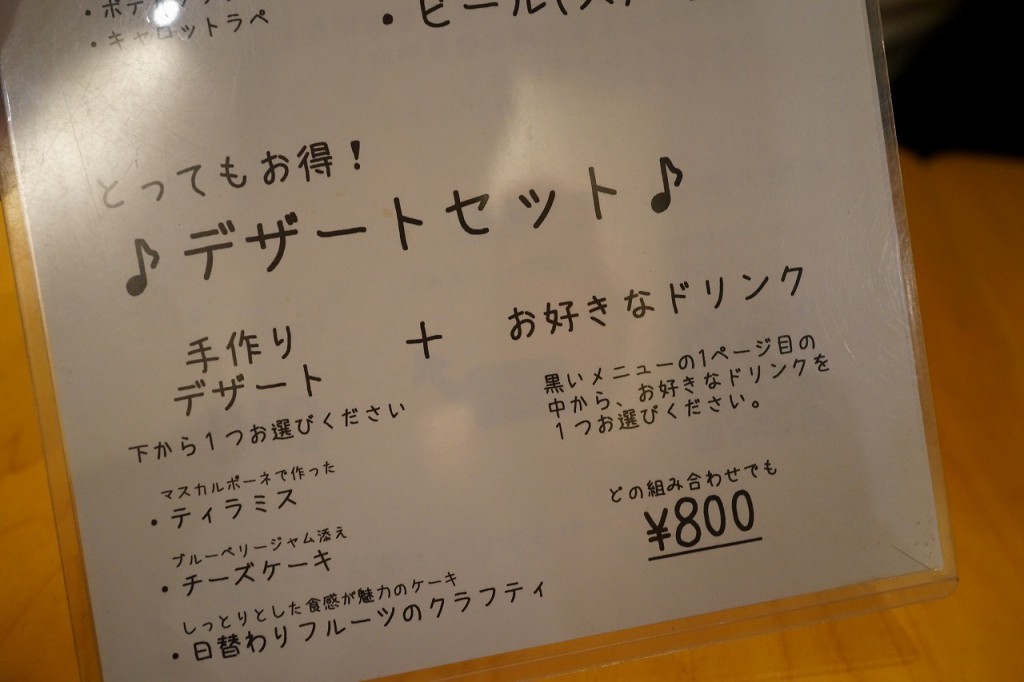 ・キャロットラペ
・ビール
とってもお得！
♪デザートセット♪
手作り
デザート
＋
お好きなドリンク
下から１つお選びください
黒いメニューの1ページ目の
中から、お好きなドリンクを
１つお選びください。
マスカルポーネで作った
・ティラミス
ブルーベリージャム添え
・チーズケーキ
しっとりとした食感が魅力のケーキ
・日替わりフルーツのクラフティ
どの組み合わせでも
¥800